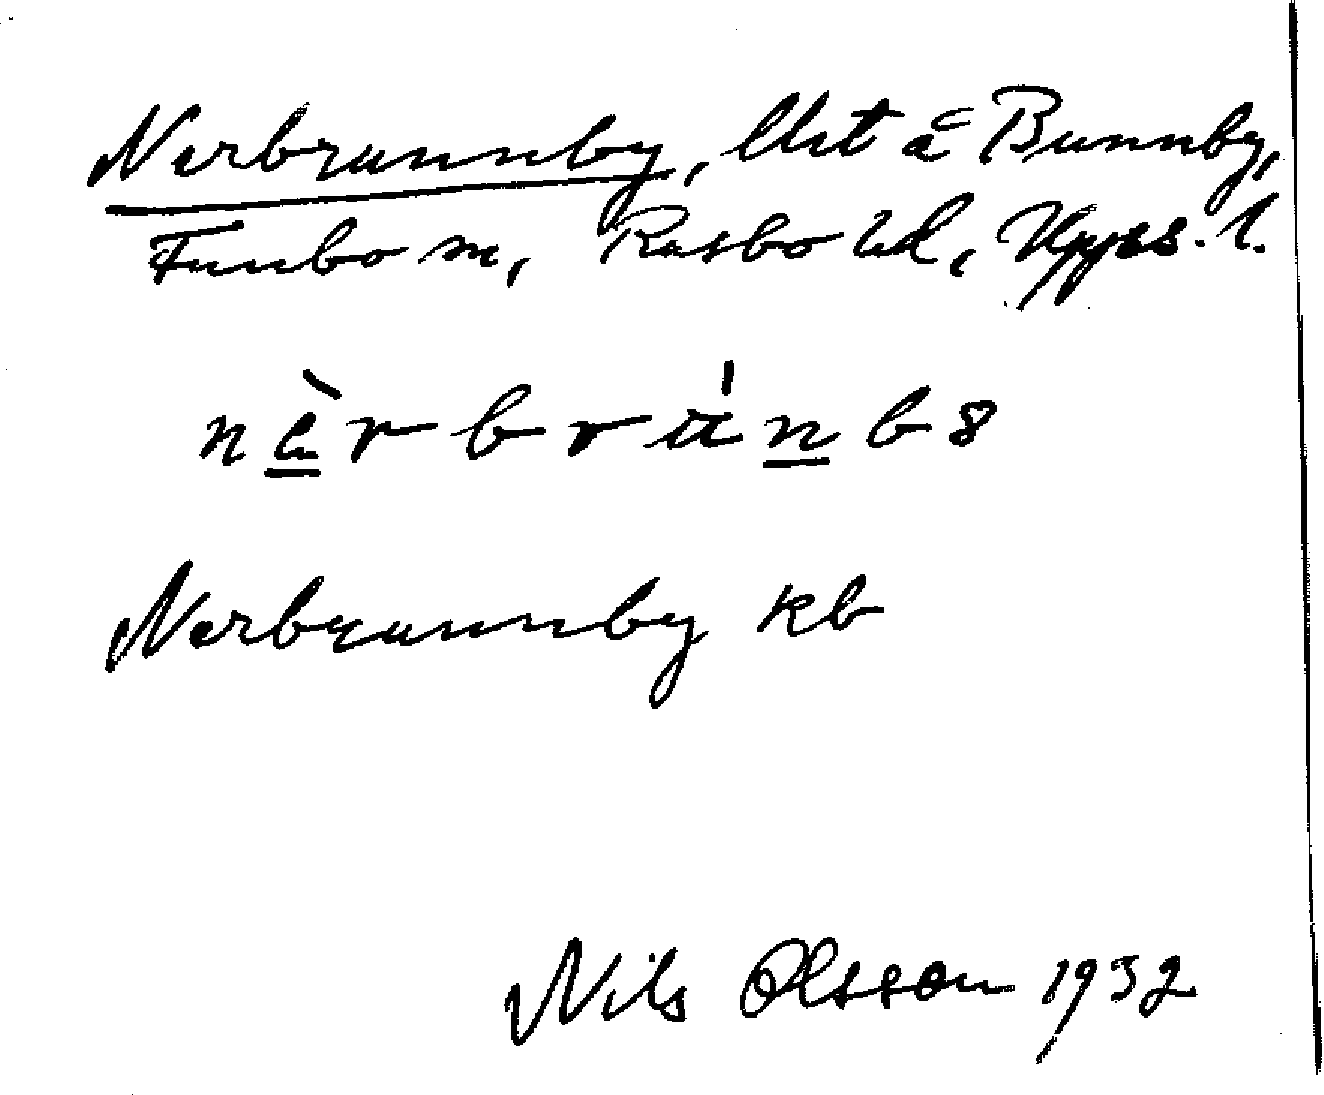 Nerbrunnby, lht å Brunnby,
Funbo sn, Rasbo hd, Upps. l.
Nerbrunnby kb
Nils Olsson 1932